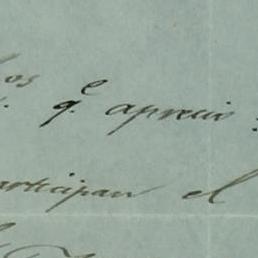 los q.e aprecio
participan el